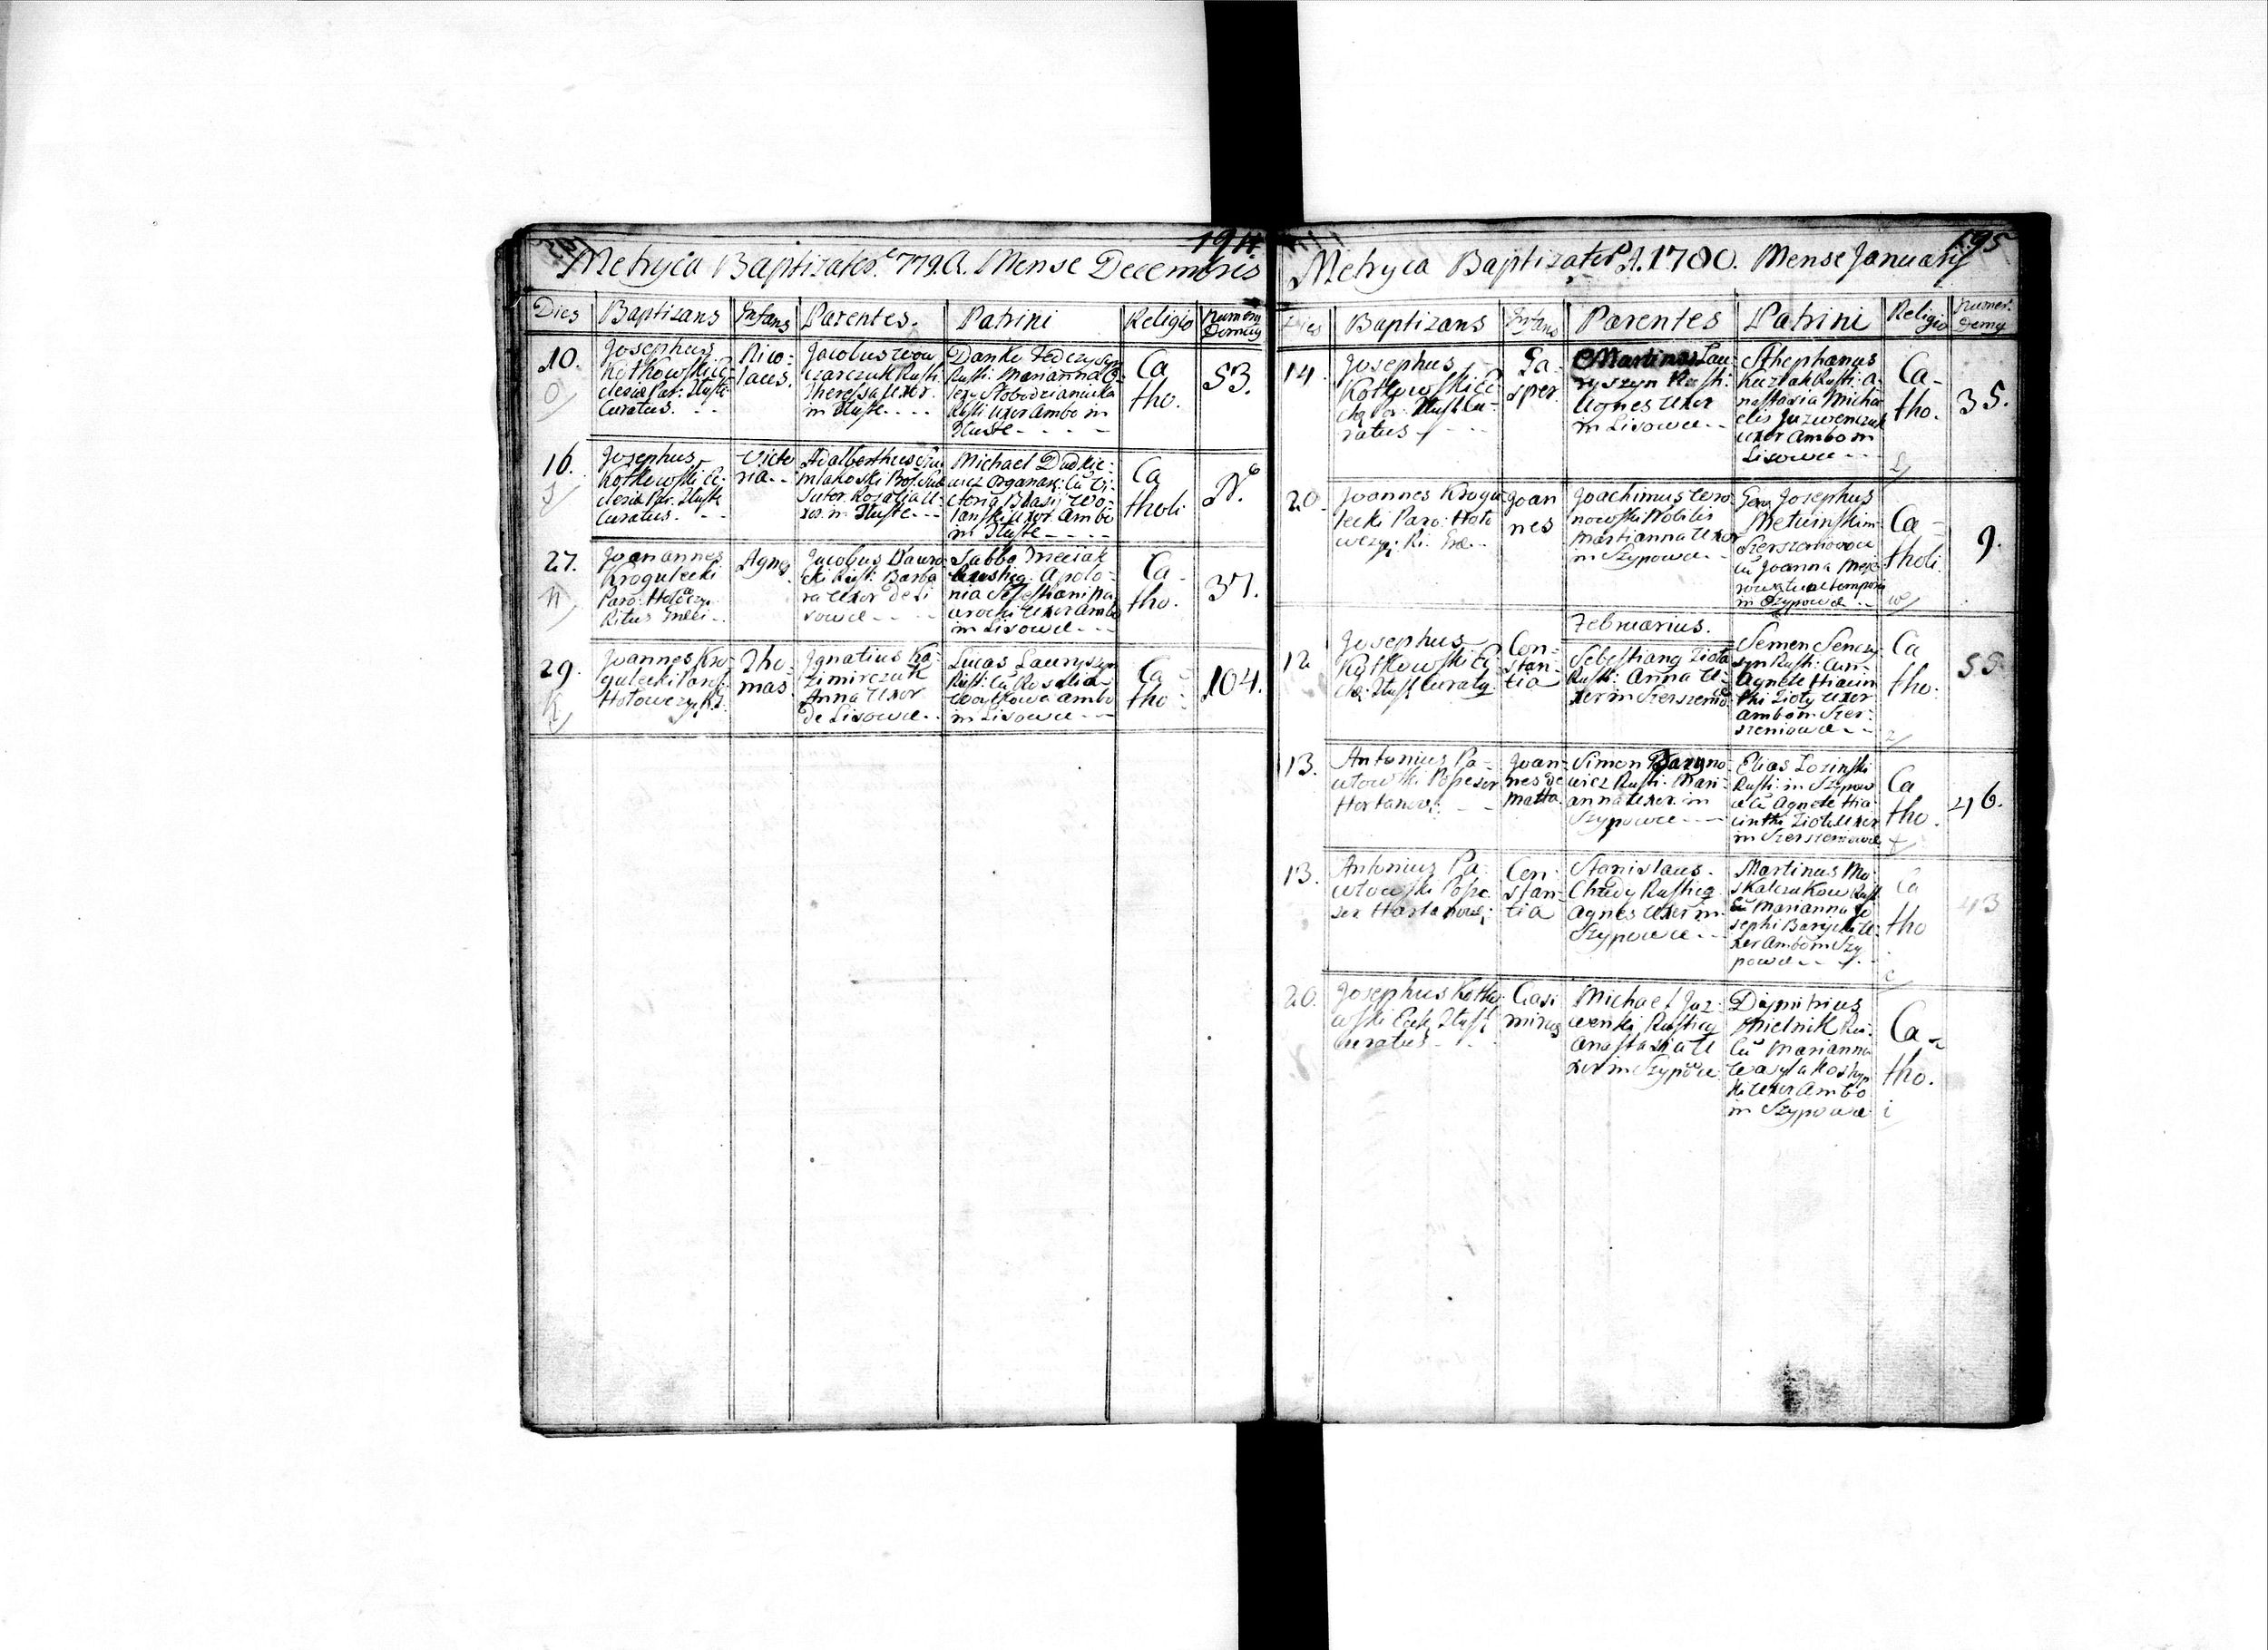 194.
Metryca Baptizator. 779. A. Mense Decembris
Dies Baptizans Infans Parentes. Patrini Religio Numerus Domus
10.
Josephus
Kotkowski Ec-
clesiæ Par: Tluste
Curatus. - -
Nico-
laus.
Jacobus
czarczuk Rusti:
Theressa Uxor.
in Tluste - - - -
Danko Fedczyszyn
Rusti: Marianna
Rusti Uxor Ambo in
Tluste - - - -
Ca
tho.
53.
16.
Josephus
Kotkowski Ec-
clesiæ Par. Tluste
Curatus. - -
Victo
ria - -
Adalberthus
Sutor. Rosalia U-
xor. in Tluste - - -
Michael Dudkie-
wicz Organar: Cũ Vi-
ctoria Blasij Wo-
lanski Uxor. Ambo
in Tluste - - - -
Ca
tholi
N. 6
27.
Joanannes
Krogulecki
Paro: Holowczy.
Ritus Græci - -
Agnes
Jacobus Dawro
cki Rusti: Barba
ra Uxor de Li
sowce - - - -
Sabba
Rusticus. Apolo-
nia Sebestiani
Uxor Ambo
in Lisowce - - -
Ca -
tho.
37.
29.
Joannes Kro-
gulecki Paro:
Holowczy. R.
Tho-
mas
Ignatius Ka-
zimirczuk
Anna Uxor
de Lisowce - -
Lucas Lauryszyn
Rusti: Cũ Rosalia
Woytkowa ambo
in Lisowce - -
Ca -
tho -
104.
195
Metryca Baptizator A. 1780. Mense January
Dies Baptizans Infans Parentes Patrini Religio Numer. Domus
14.
Josephus
Kotkowski Ec-
Tluste Cu-
ratus - - -
Ga-
sper.
Martinus Lau
ryszyn Rusti:
Agnes Uxor
in Lisowce - -
Sthephanus
Kuzlak Rusti: A-
nastasia Micha
elis Jazwenczuk
Uxor Ambo in
Lisowce - - -
Ca -
tho.
35.
20.
Joannes Krogu
lecki Paro: Holo
wczy: Ri. Græ - -
Joan
nes
Joachimus Wro
nowski Nobilis
Martianna Uxor
in Szypowce - -
Josephus
Metwinski in
Szerszeniowce
Cũ Joanna
in Szypowce - -
Ca -
tholi.
9.
Februarius.
12
Josephus
Kotkowski Ec
Tlust Curatus.
Con-
stan-
tia
Sebestianus Ziola
Rusti: Anna U-
xor in Szerszenio
Semen Senczy
szyn Rusti: Cum
Agnete Hiacin
thi Zioly Uxor
Ambo in Szer-
szeniowce - -
Ca
tho:
55
13.
Antonius Pa-
wlowski Pope ser
Hartanow: - -
Joan-
nes de
Matta.
Simon Baryno-
wicz Rusti: Mari-
anna Uxor. in
Szypowce - - -
Elias Lozinski
Rusti: in Szypow
ce Cũ Agnete Hia-
cinthi Ziola Uxor
in Szerszeniowce
Ca
tho.
46.
13.
Antonius Pa-
wlowski Pope
ser Hartanow:
Con-
stan-
tia
Stanislaus
Chudy Rusticus
Agnes Uxor in
Szypowce - - -
Martinus Mo-
skalczukow Rusti
Cũ Marianna Jo
sephi Baryckи U-
xor Ambo in Szy
powce - - -
Ca
tho
43
20.
Josephus Kotko
wski Eccl. Tlust
Curatus - -
Casi
mirus
Michael Jaz-
wenki Rusticus
Anastasia U
xor in Szypowce
Dymitrius
Mielnik Rus.
Cũ Marianna
Wasyla
Uxor Ambo
in Szypowce
Ca -
tho.